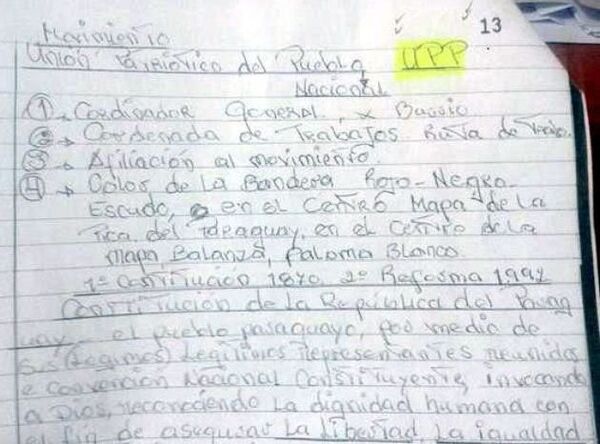 13
Movimiento
Union Patriotico del Pueblo UPP
Nacional
① → Cordinador General x
② → Cordenada de Trabajos Ruta de
③ → Afiliación al movimiento.
④ → Color de la Bandera Rojo-Negro-
Escudo, en el Centro Mapa de la
Rca. del Paraguay, en el Centro de la
mapa Balanza, Paloma Blanco.
1º Constitución 1870 2º Reforma 1992
Constitución de la República del Parag
uay el pueblo paraguayo, por medio de
sus Legitimos representantes reunidos
e convención Nacional Constituyente, invocando
a Dios, reconociendo la dignidad humana con
el fin de asegurar la libertad la igualdad